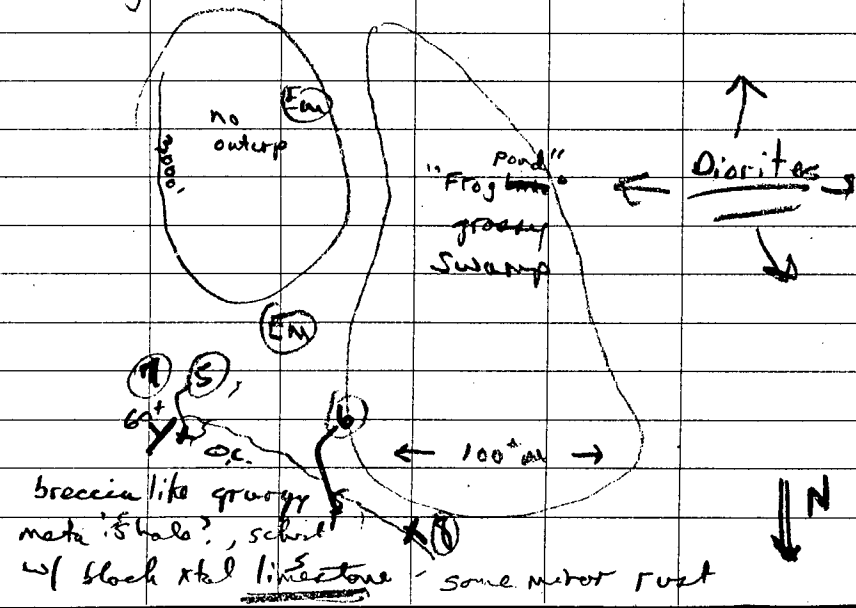 no
outcrp
Em
3000'
"Frog Pond"
grassy
Swamp
Diorites
Em
7 5,
60+
6
O.C.
100± m
N
breccia like grungy
meta 'shale?, schist
8
w/ black xtal limestone - some minor rust